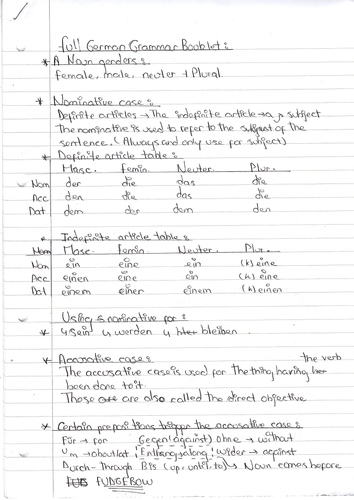 full German Grammar Booklet:
* A Noun genders:
Female, male, neuter + Plural.
* Nominative case:
Definite articles → The indefinite article → a, subject
The nominative is used to refer to the subject of the
sentence. (Always and only use for subject)
* Definite article table:
Masc. Femin Neuter. Plur.
Nom der die das die
Acc den die das die
Dat dem der dem den
* Indefinite article table:
Nom Masc Femin Neuter. Plur.
Nom ein eine ein (k)eine
Acc einen eine ein (k)eine
Dat einem einer einem (k)einen
Using nominative for:
* ↳ Sein ↳ werden ↳ bleiben
* Accusative case: the verb
The accusative case is used for the thing having
been done to it.
These are also called the direct objective
* Certain prepositions trigger the accusative case:
Für → for Gegen (against) ohne → without
Um → about/at Entlang (along) Wider → against
Durch - through Bis (up, until, to) → Noun comes before
FUDGEBOW